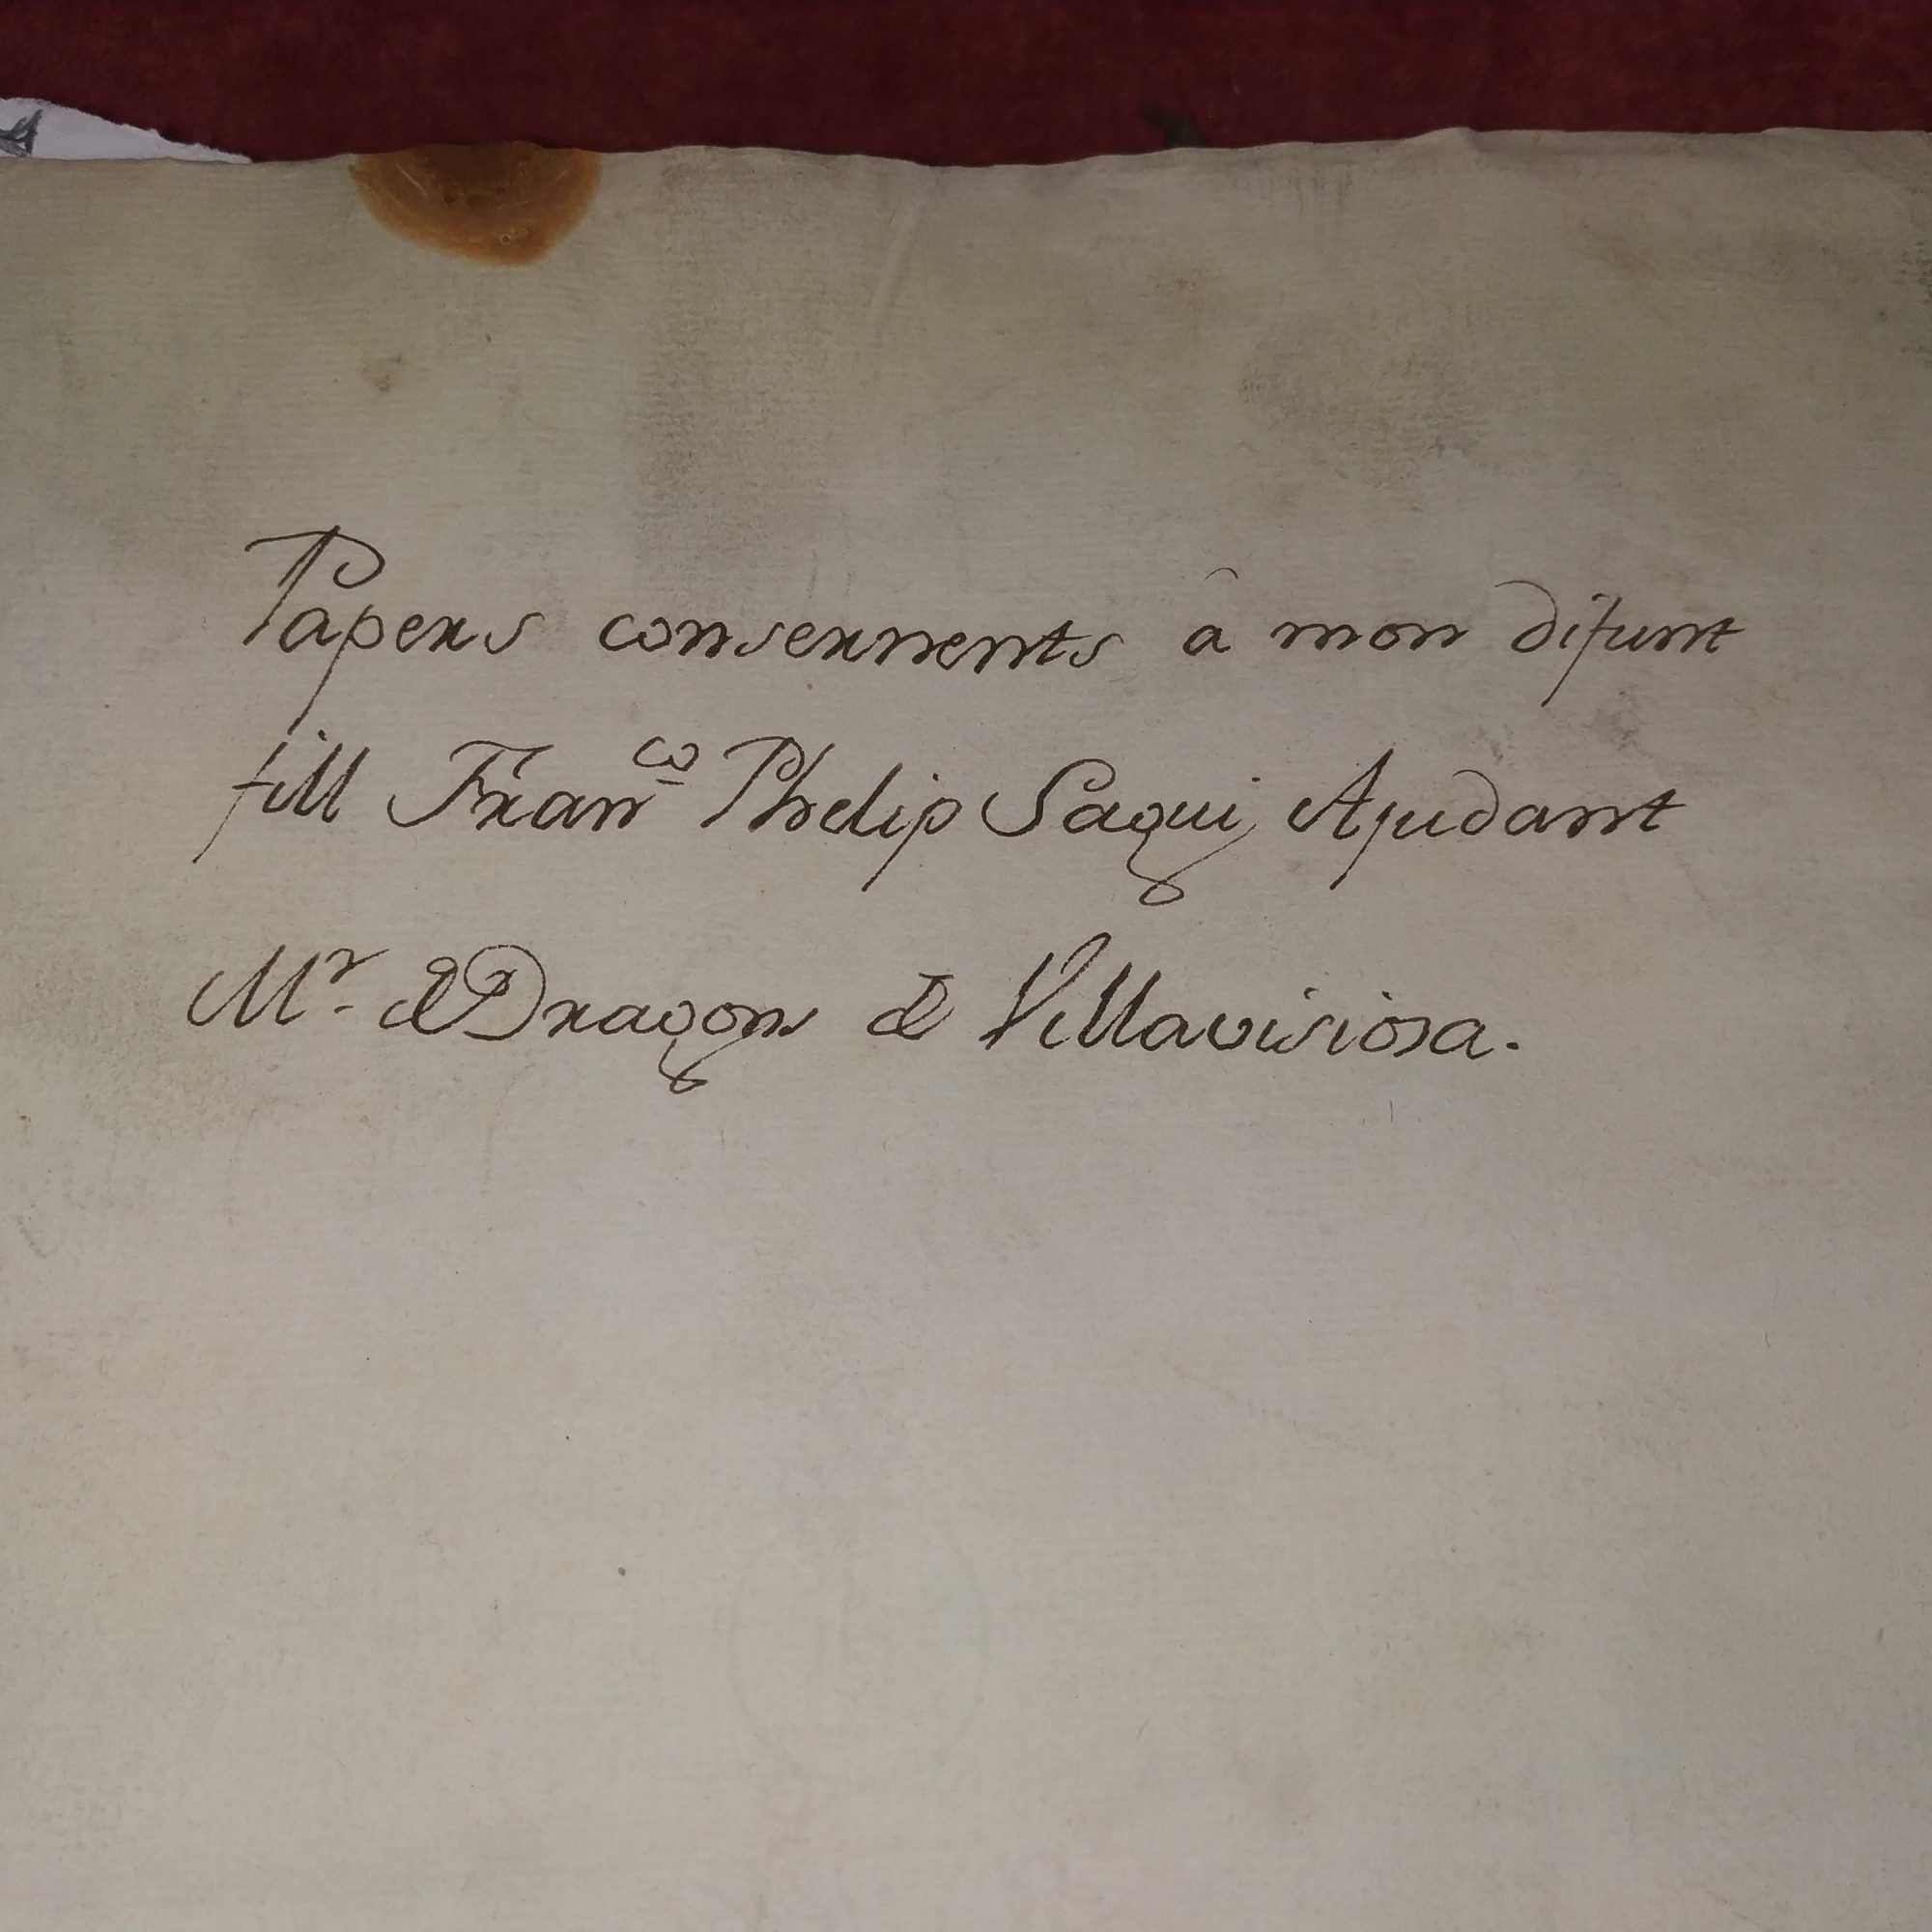 Papers consernents â mon difunt
fill Fran.co Phelip Sagui Ajudant
Mr. de Dragons de Villavisiosa.